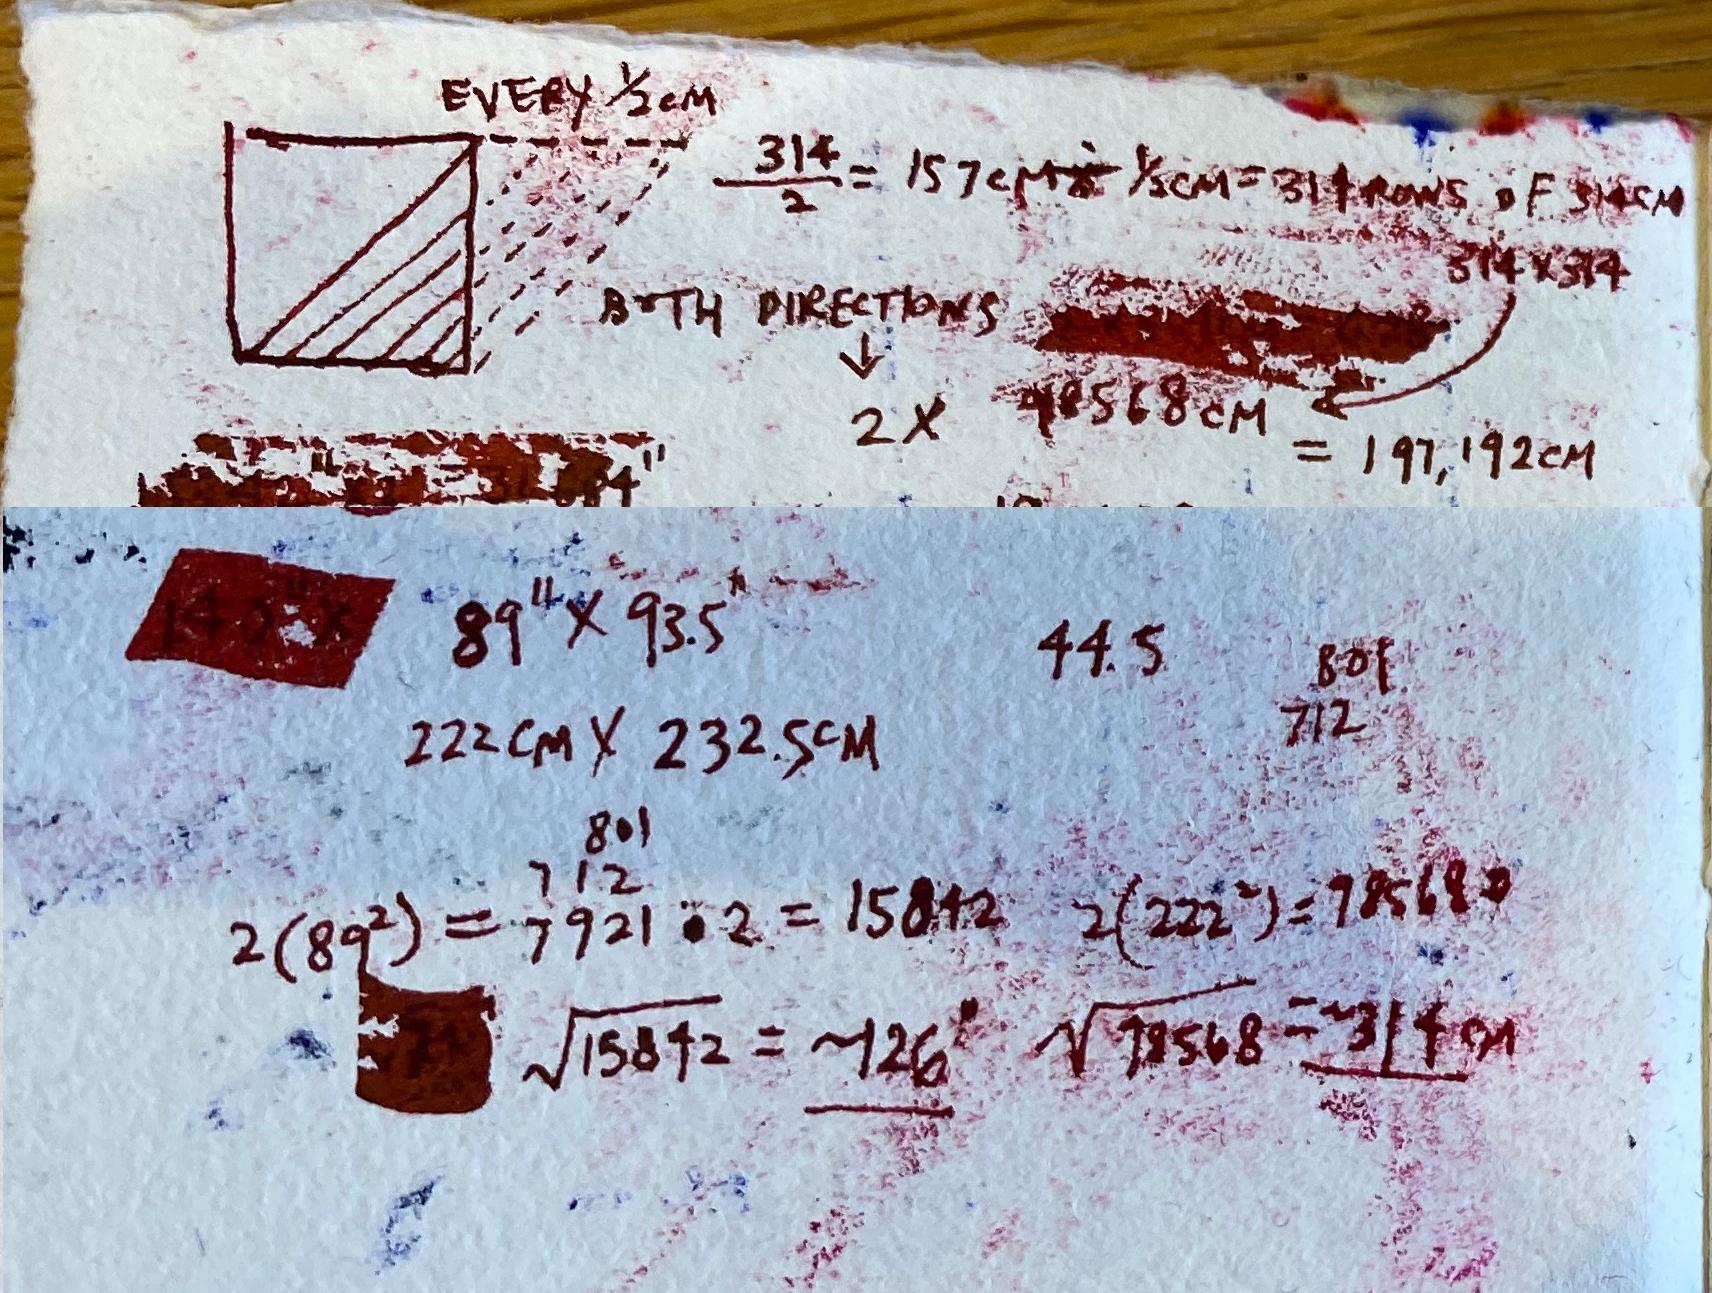 EVERY 1/2 CM
314/2 = 157 CM ÷ 1/2 CM = 314 ROWS OF 314CM
314 X 314
BOTH DIRECTIONS
↓
2 X 98568 CM = 197,192 CM
89" X 93.5"
44.5
801
712
222 CM X 232.5 CM
801
712
2(89²) = 7921 • 2 = 15842
2(222²) = 98568
√15842 = ~126"
√98568 = ~314 CM